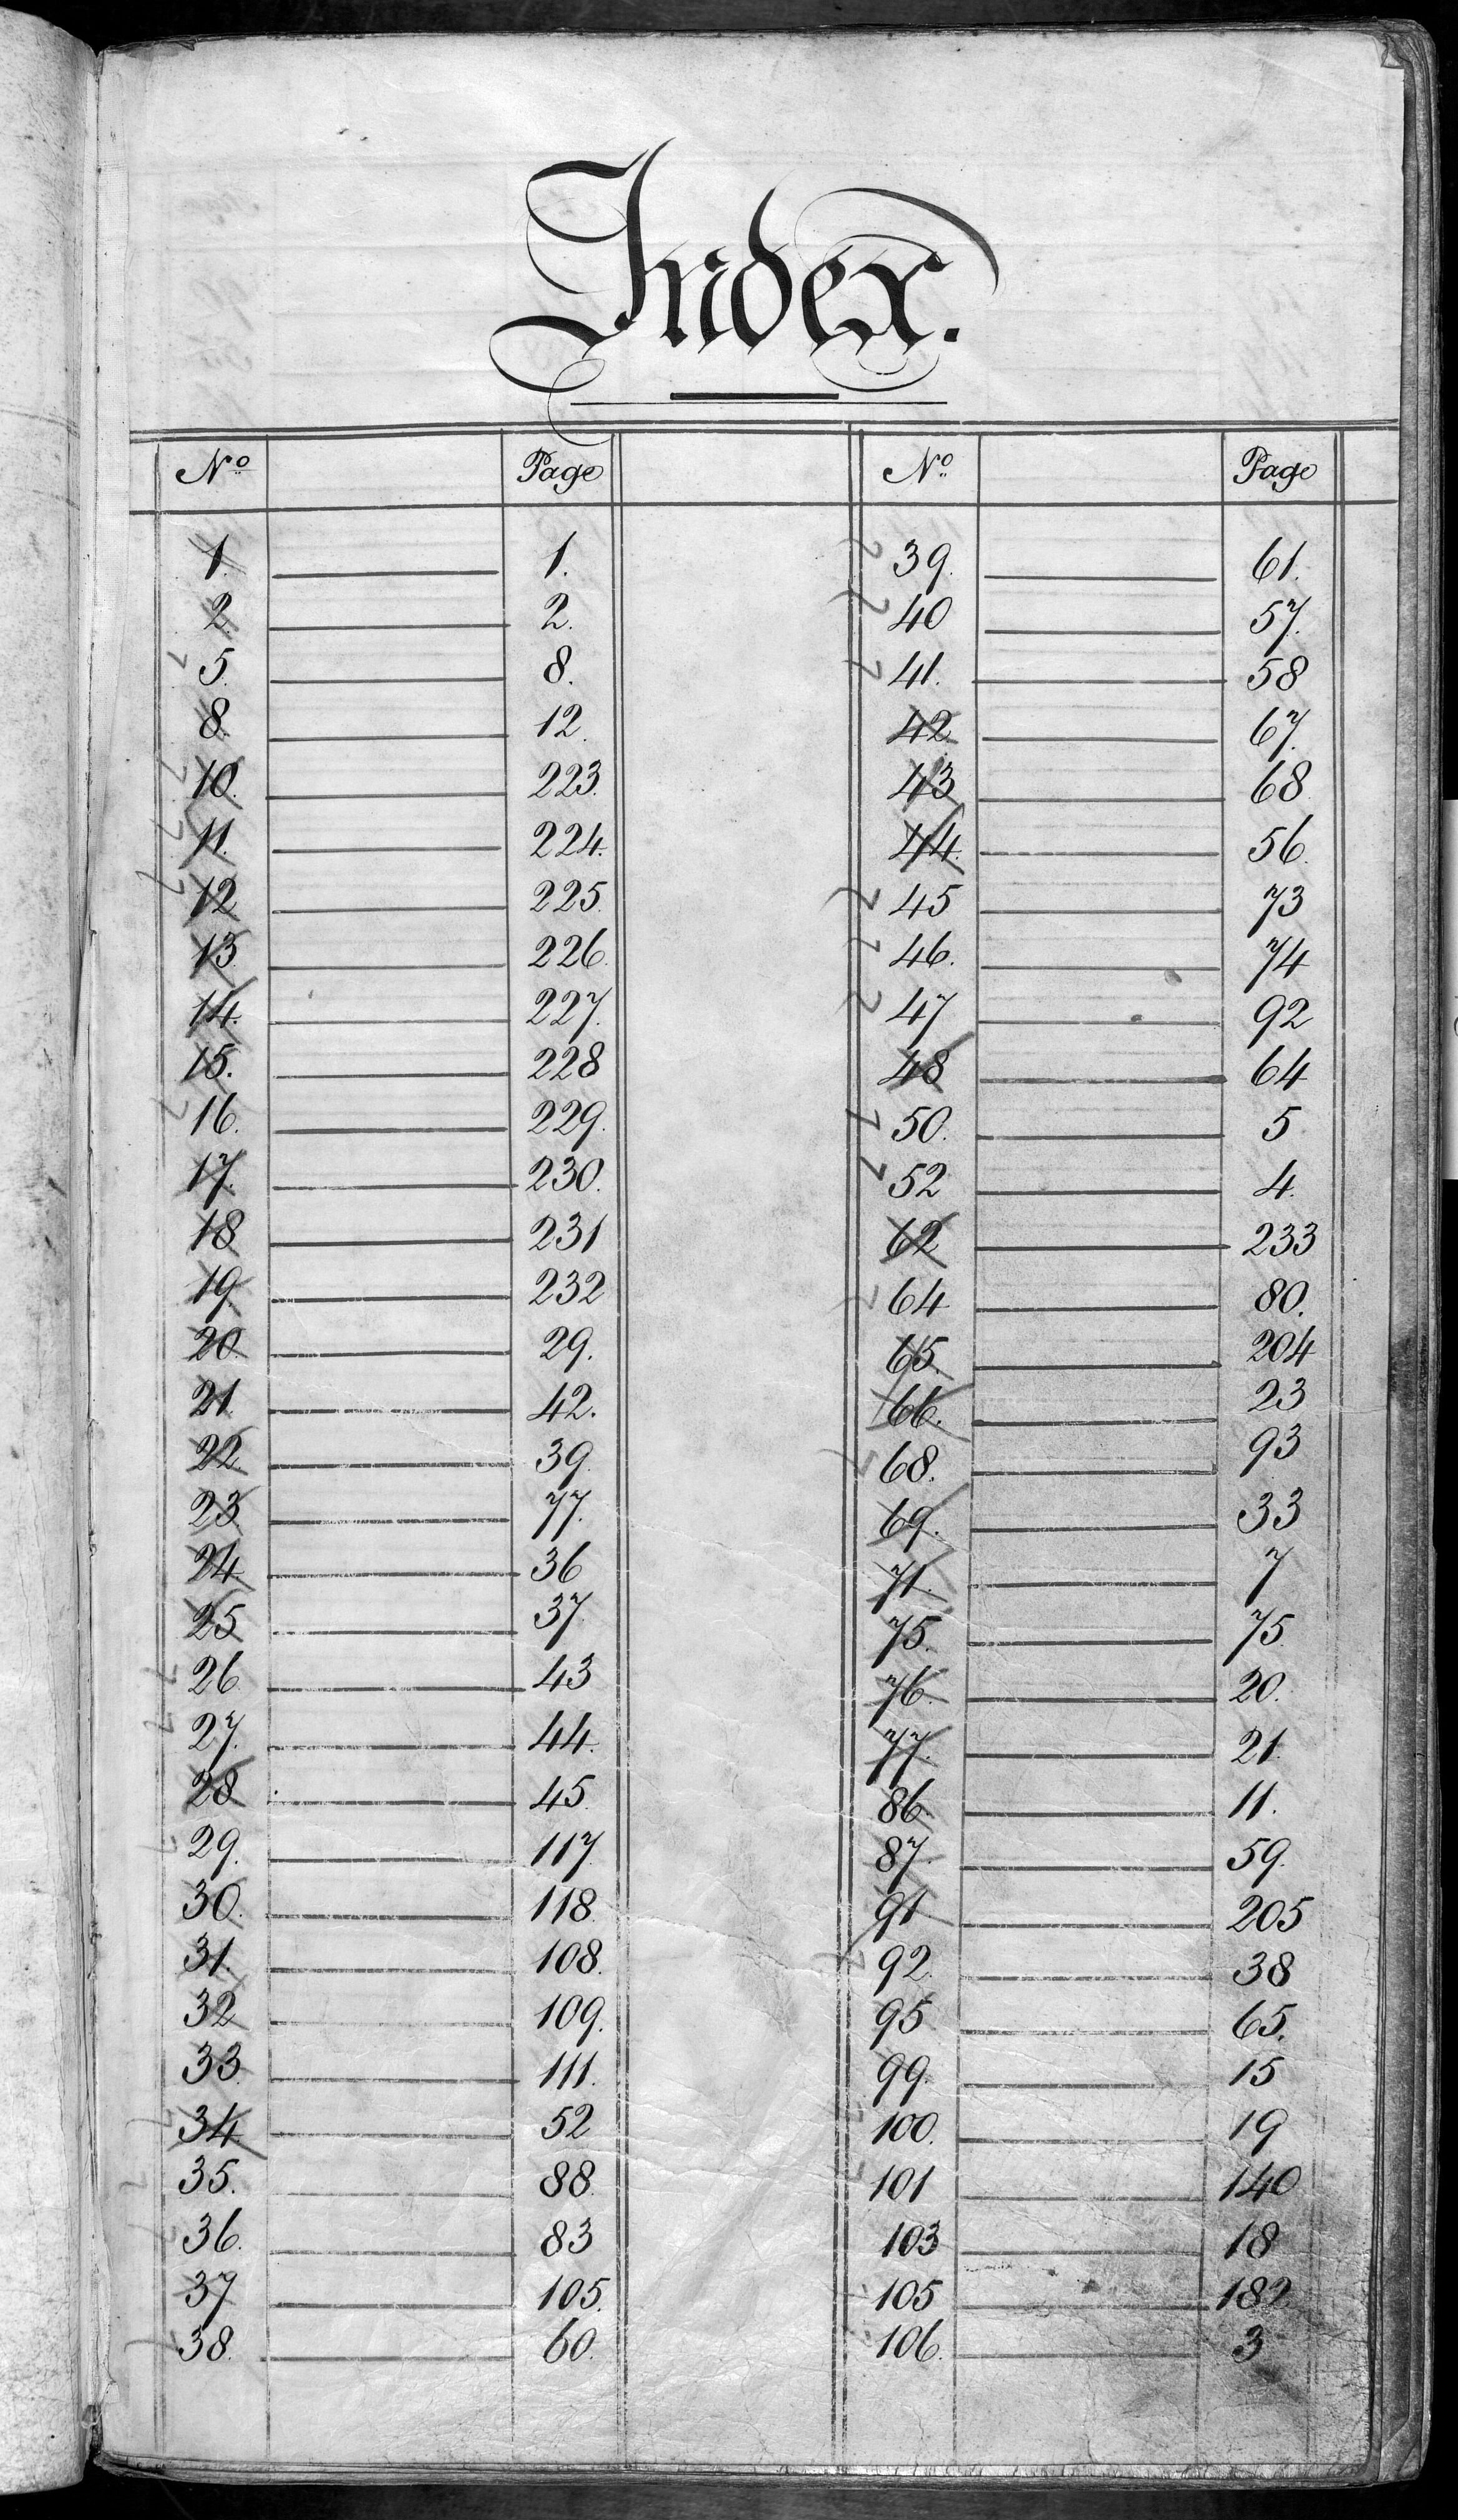 Index.
No Page
1. 1.
2. 2.
5. 8.
8. 12.
10. 223.
11. 224.
12 225.
13 226.
14. 227.
15. 228
16. 229.
17. 230.
18 231
19 232
20. 29.
21. 42.
22. 39.
23 77.
24. 36
25 37.
26. 43
27. 44.
28 45.
29. 117.
30. 118.
31. 108.
32 109.
33. 111.
34 52
35. 88.
36. 83
37 105.
38. 60.
No Page
39. 61.
40 57.
41. 58
42 67.
43 68
44. 56.
45 73
46. 74
47 92
48 64
50. 5
52 4.
62 233
64 80.
65. 204
66. 23
68. 93
69. 33
71. 7
75. 75.
76. 20.
77. 21.
86 11.
87. 59.
91 205
92. 38
95 65.
99. 15
100. 19
101 140
103 18
105 182
106. 3